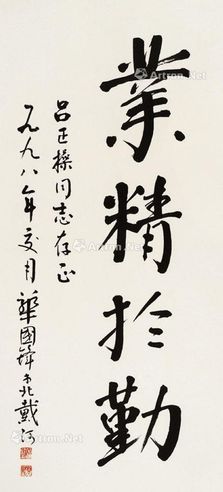 業精於勤
呂正操同志存正
一九九八年夏月華國鋒于北戴河
Artron.Net